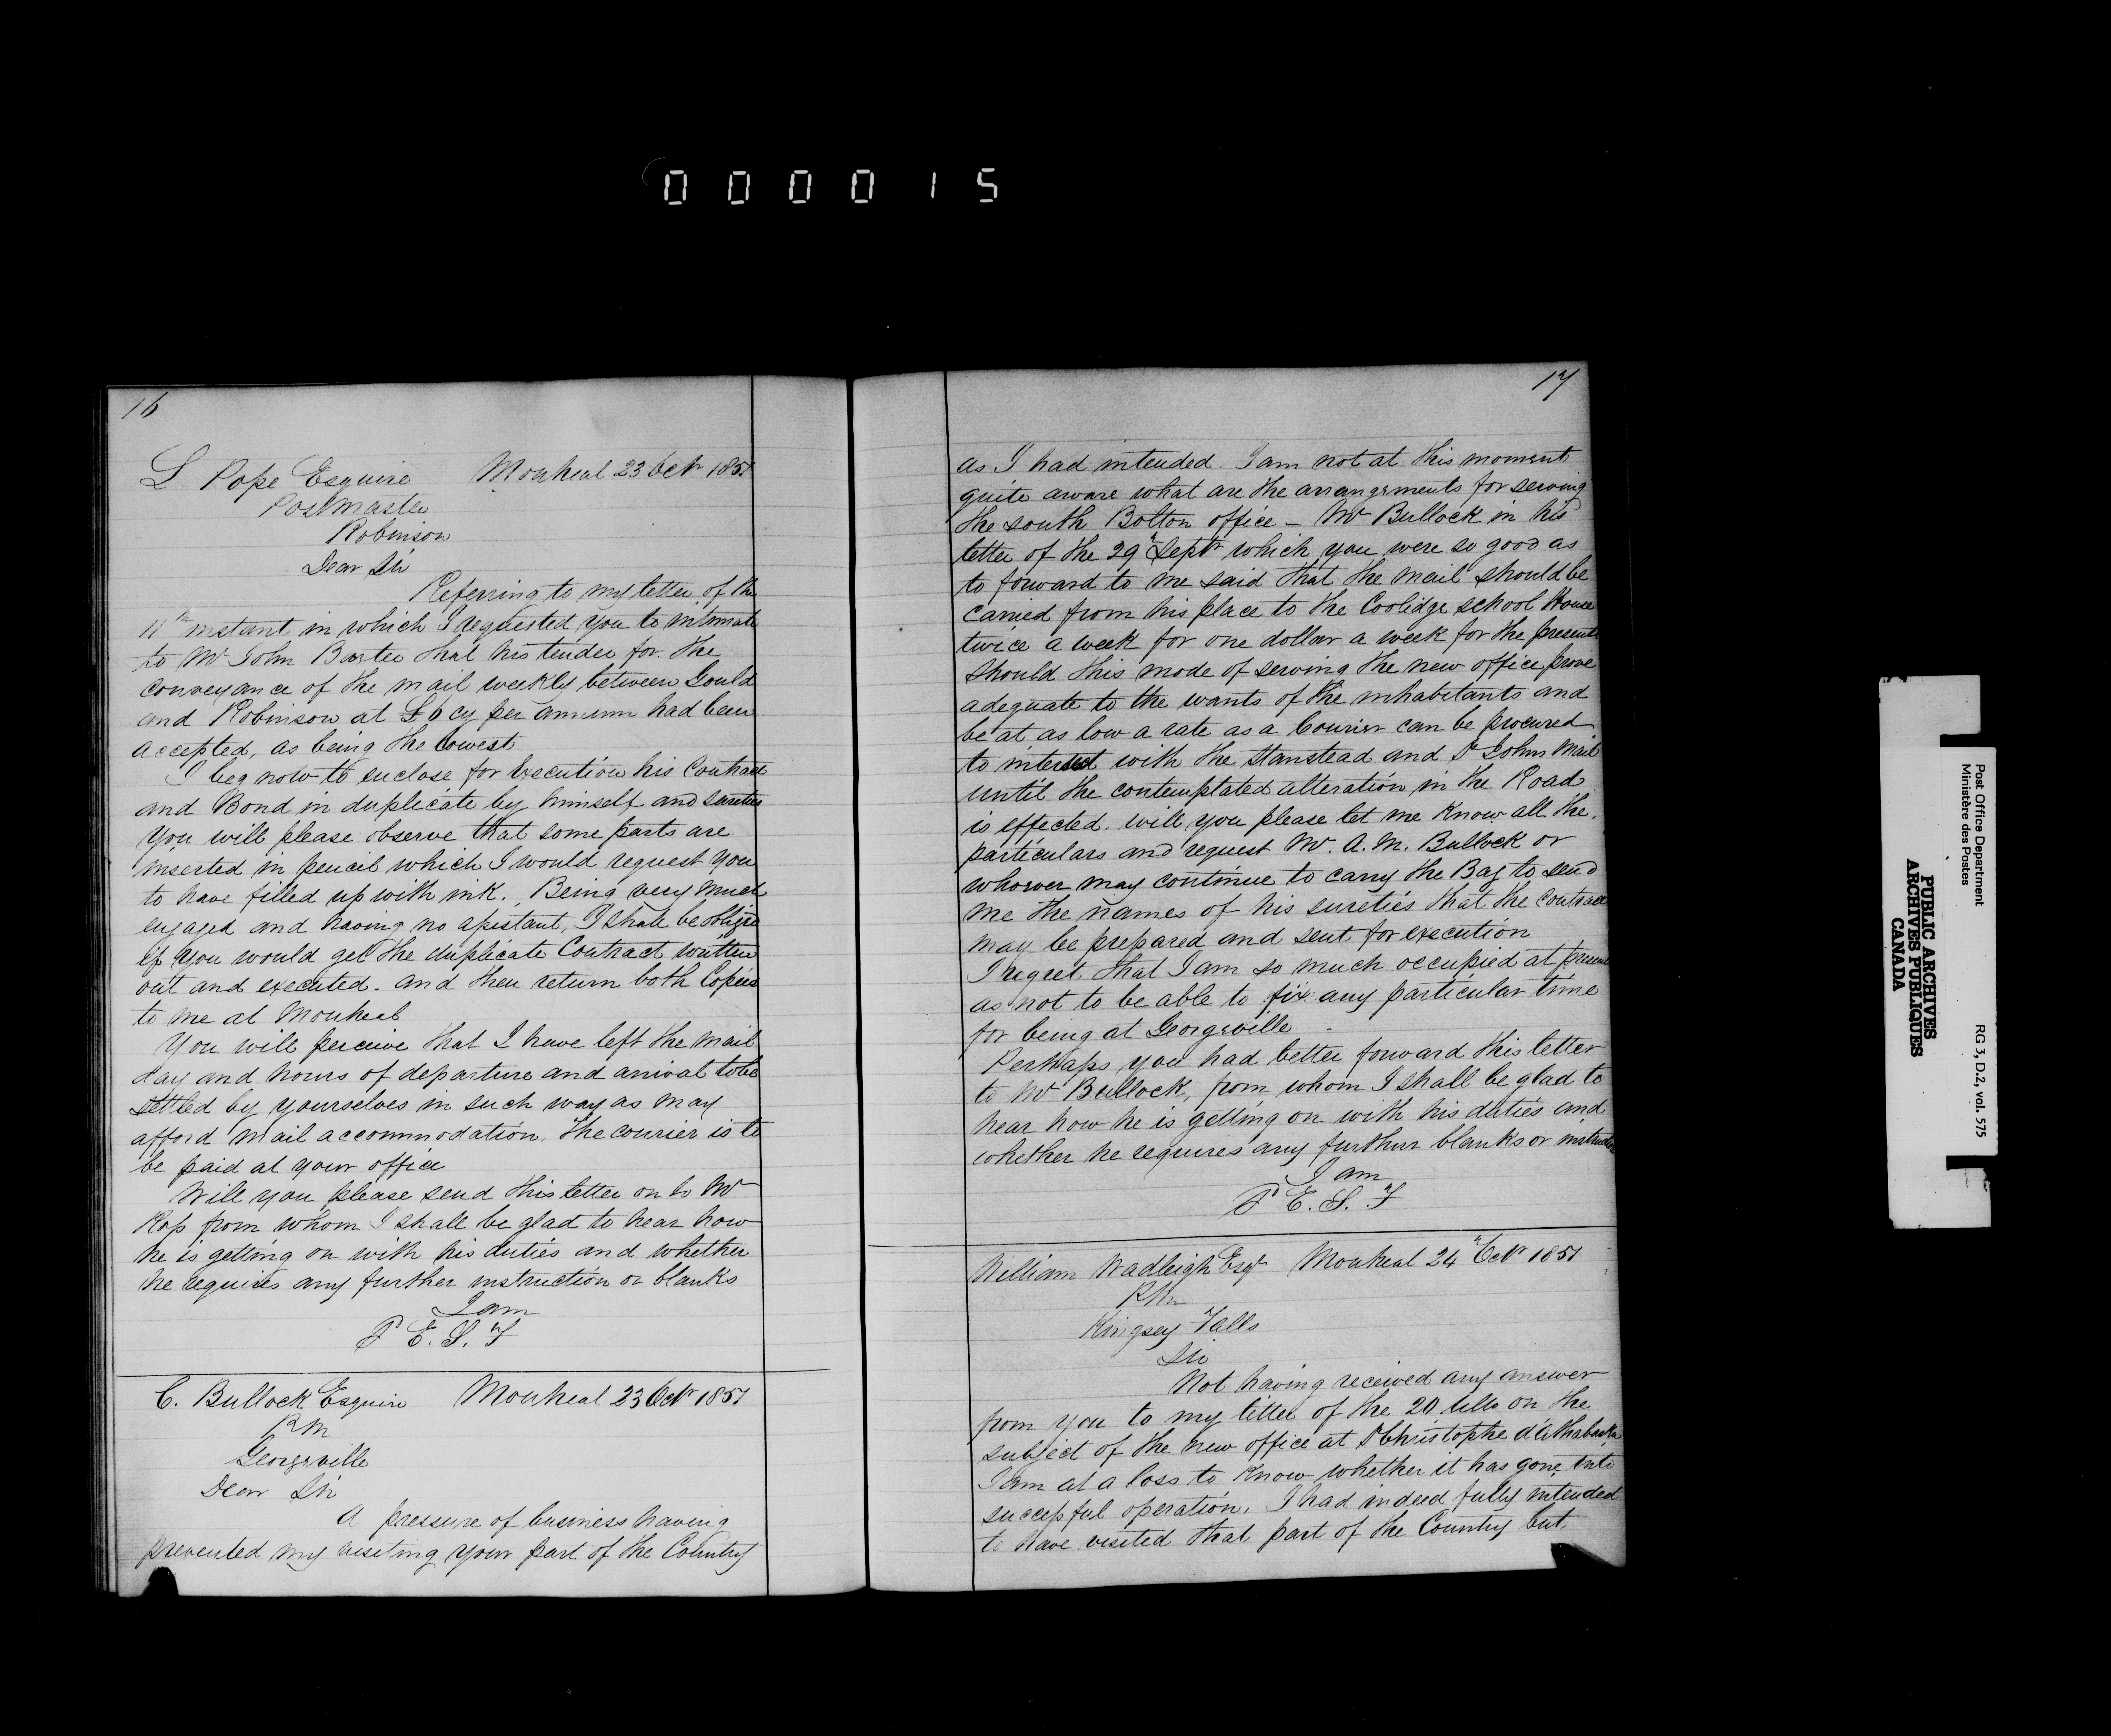 000015
16
L Pope Esquire Montreal 23 Octr 1851
Postmaster
Robinson
Dear Sir
Referring to my letter of the
11th instant in which I requested you to intimate
to Mr John Barter that his tender for the
conveyance of the mail weekly between Gould
and Robinson at £6 cy per annum had been
accepted, as being the lowest
I beg now to enclose for execution his Contract
and Bond in duplicate by himself and sureties
You will please observe that some parts are
inserted in pencil which I would request you
to have filled up with ink. Being very much
engaged and having no assistant, I shall be obliged
if you would get the duplicate Contract written
out and executed. and then return both Copies
to me at Montreal
You will perceive that I have left the mail
day and hours of departure and arrival to be
settled by yourselves in such way as may
afford mail accommodation. the courier is to
be paid at your office
Will you please send this letter on to Mr
Ross from whom I shall be glad to hear how
he is getting on with his duties and whether
he requires any further instruction or blanks
I am
P E. S. F
C. Bullock Esquire Montreal 23 Octr 1851
P M
Georgeville
Dear Sir
A pressure of business having
prevented my visiting your part of the Country
17
as I had intended. I am not at this moment
quite aware what are the arrangements for serving
the south Bolton office – Mr Bullock in his
letter of the 29th Septr which you were so good as
to forward to me said that the mail should be
carried from his place to the Coolidge school House
twice a week for one dollar a week for the present
should this mode of serving the new office prove
adequate to the wants of the inhabitants and
be at as low a rate as a Courier can be procured
to intersect with the Stanstead and St Johns Mail
until the contemplated alteration in the Road
is effected. will you please let me know all the
particulars and request Mr. A. M. Bullock or
whoever may continue to carry the Bag to send
me the names of his sureties that the Contract
may be prepared and sent for execution
I regret that I am so much occupied at present
as not to be able to fix any particular time
for being at Georgeville
Perhaps you had better forward this letter
to Mr Bullock, from whom I shall be glad to
hear how he is getting on with his duties and
whether he requires any further blanks or instruction
I am
P E. S. F
William Wadleigh Esqr Montreal 24 Octr 1851
P M
Kingsey Falls
Sir
Not having received any answer
from you to my letter of the 20 ulto on the
subject of the new office at St Christophe d'Athabaska
I am at a loss to know whether it has gone into
successful operation. I had indeed fully intended
to have visited that part of the Country but
Post Office Department
Ministère des Postes
RG 3, D.2, vol. 575
PUBLIC ARCHIVES
ARCHIVES PUBLIQUES
CANADA